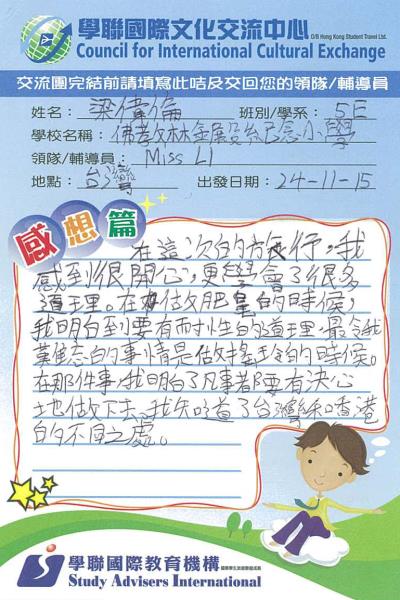 學聯國際文化交流中心
O/B Hong Kong Student Travel Ltd.
Council for International Cultural Exchange
交流團完結前請填寫此咭及交回您的領隊/輔導員
姓名：梁偉倫 班別/學系：5E
學校名稱：佛教林金殿紀念小學
領隊/輔導員：Miss LI
地點：台灣 出發日期：24-11-15
感想篇
在這次的旅行，我
感到很開心，更學會了很多
道理。在做肥皂的時候，
我明白到要有耐性的道理。最令我
難忘的事情是做搖令的時候。
在那件事，我明白了凡事都要有決心
地做下去。我知道了台灣和香港
的不同之處。
學聯國際教育機構
Study Advisers International